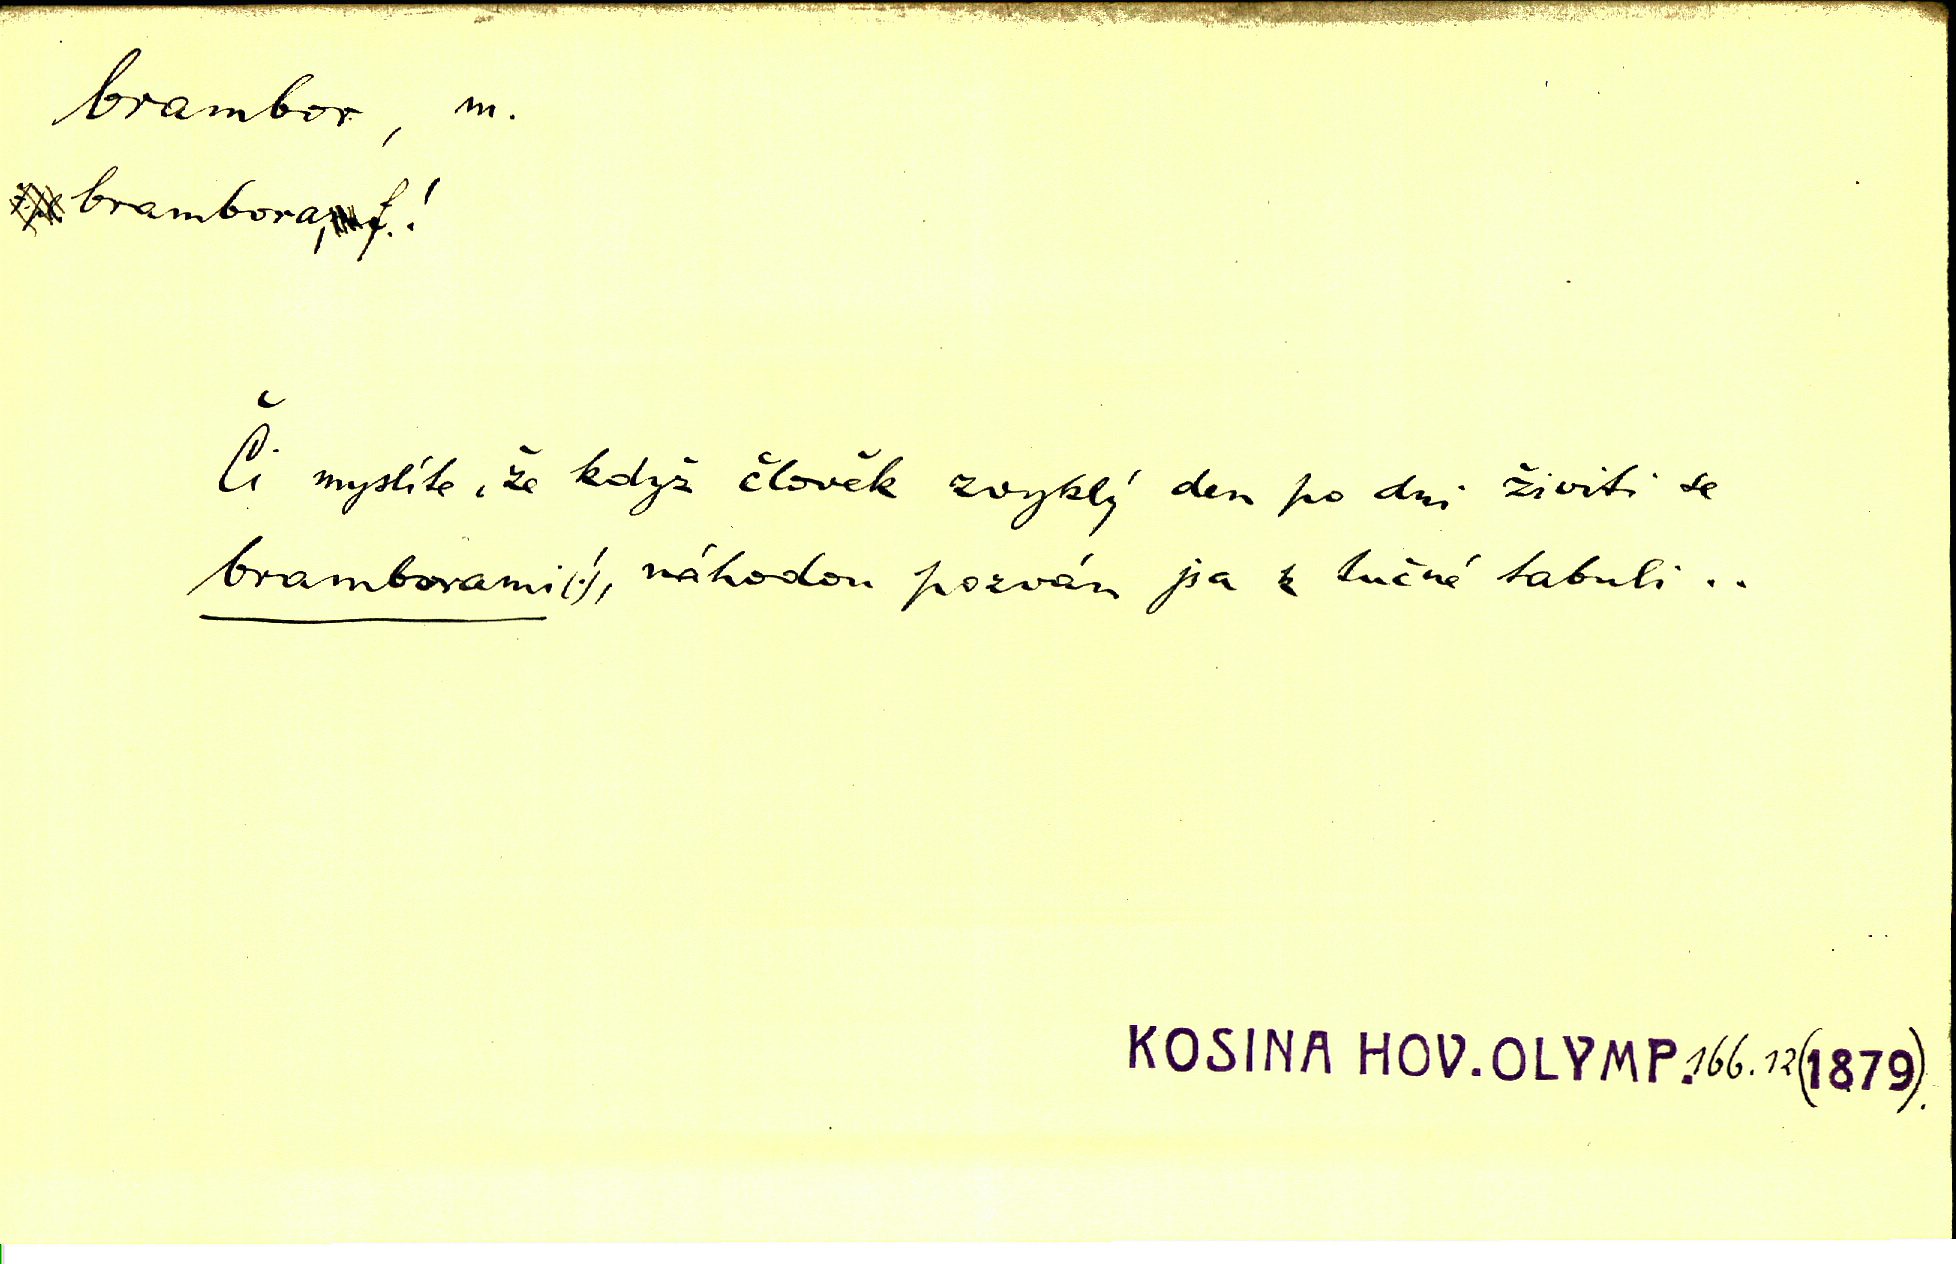 brambor, m.
brambora, f.!
Či myslíte, že když člověk zvyklý den po dni živiti se
bramborami(!), náhodou pozván jsa k tučné tabuli ..
KOSINA HOV. OLYMP. 166. 12 (1879).